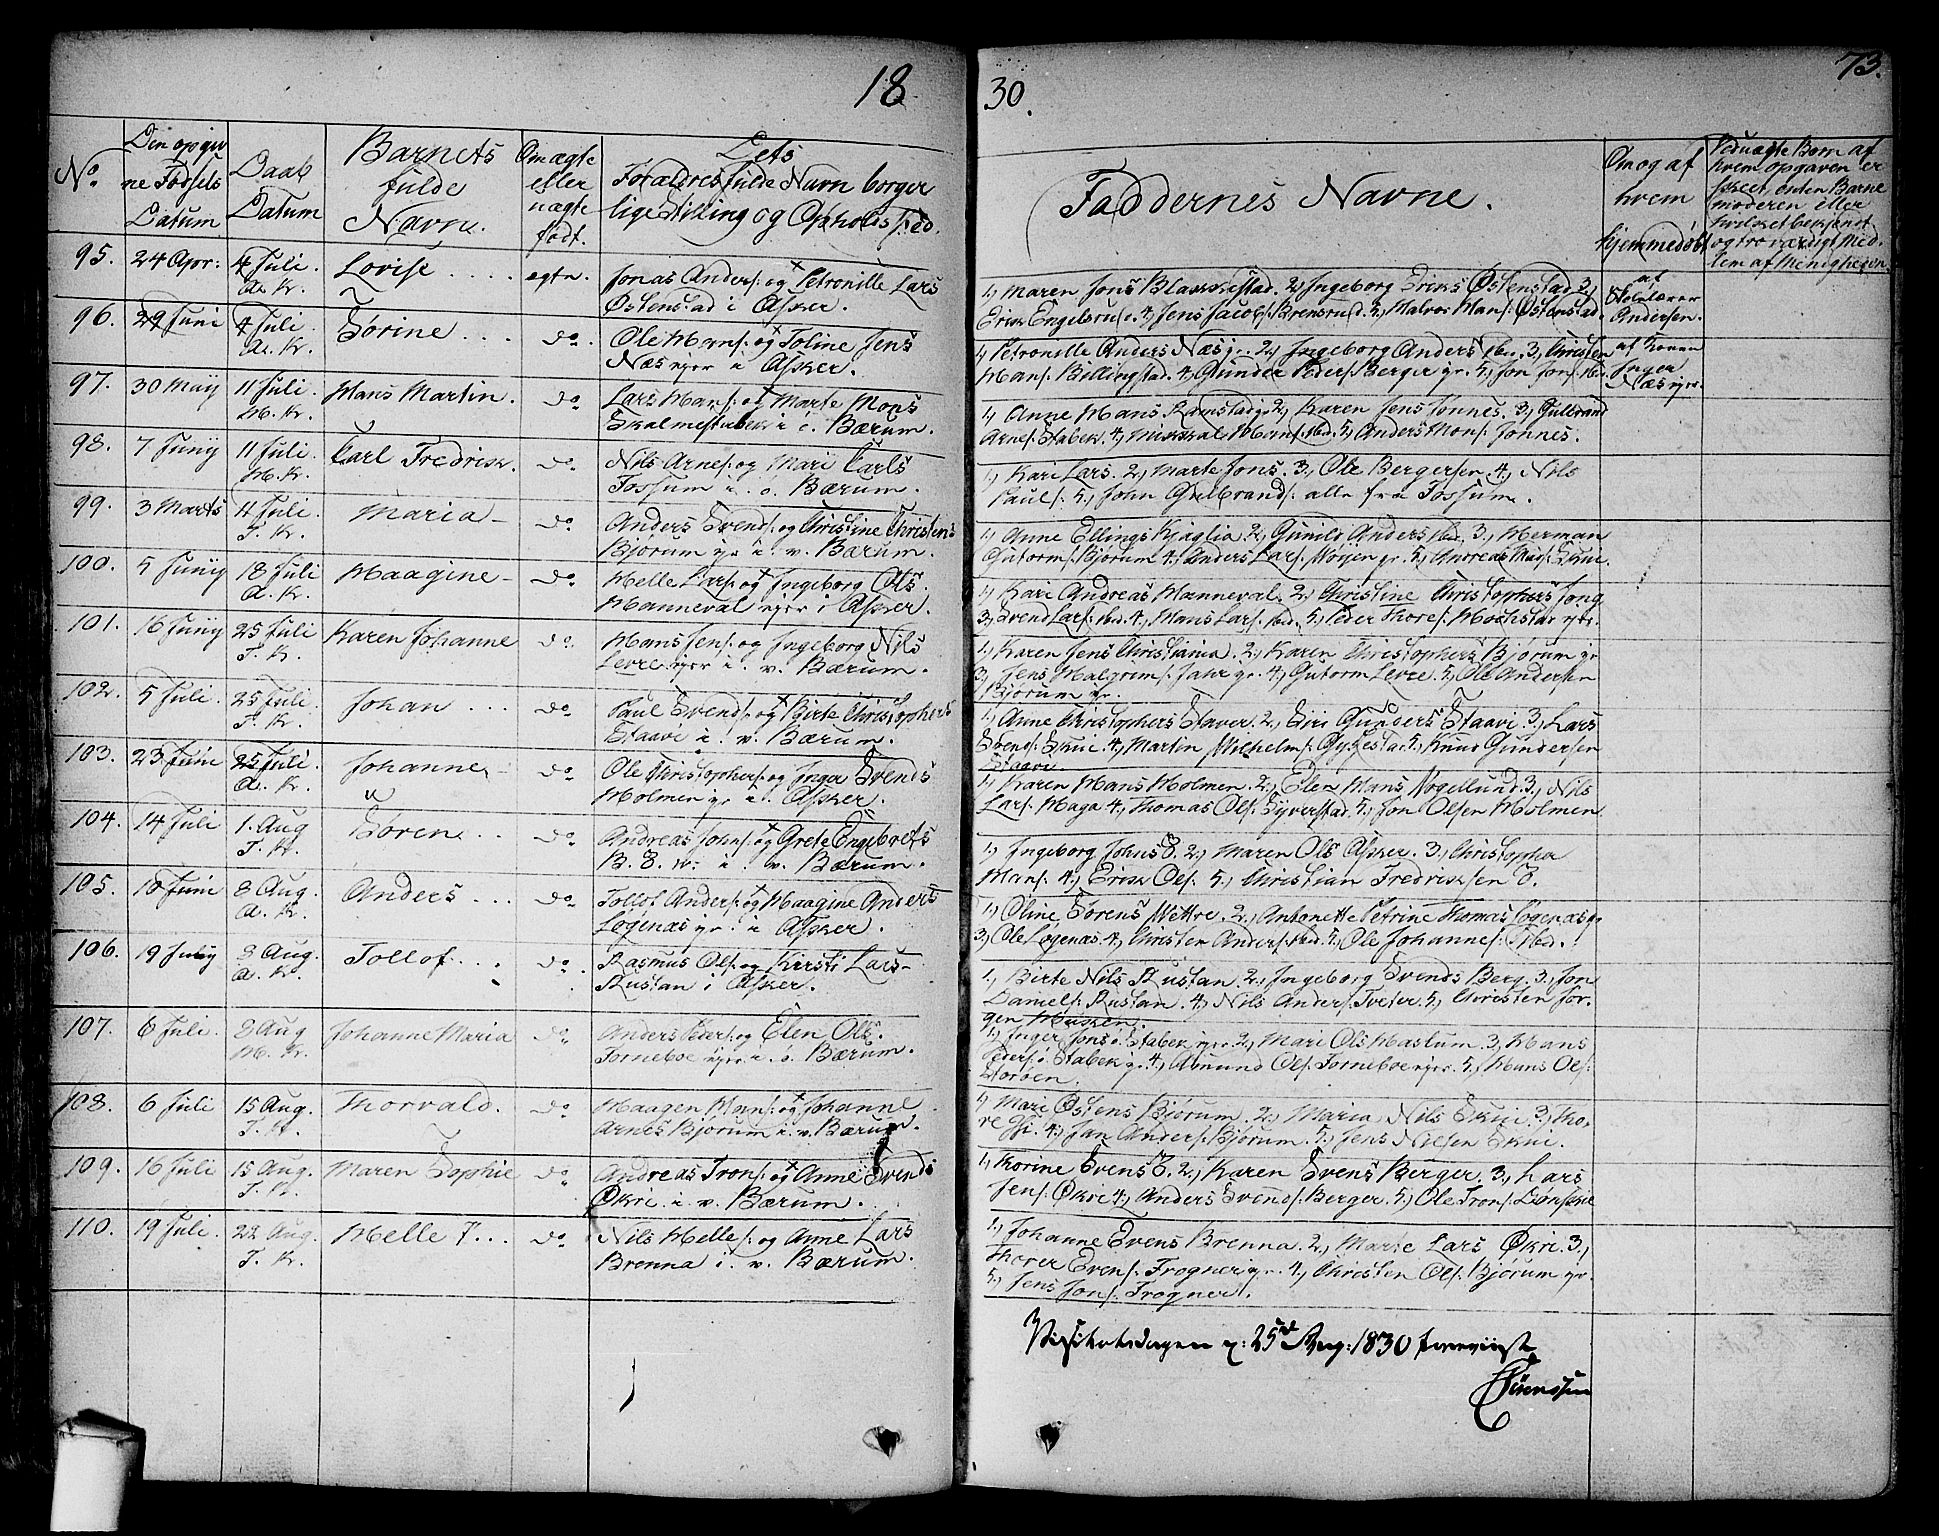 18
30.
73.
No.
Den opgiv
ne Fødsels
Datum
Daab
Datum
Barnets
fulde
Navn.
Om ægte
eller
uægte
født.
Dets
Forældres fulde Navn borger
lige Stilling og Opholdssted.
Faddernes Navne.
Om og af
hvem
hjemmedøbt
Ved uægte Børn af
hvem opgaven er
skeet, enten Barne
moderen eller
hvilket bekjendt
og troværdigt Med-
lem af Menigheden.
95. 24 Apr: 4 Juli. Lovise .... egte. Jonas Anders: og Petronille Lars
A. K. Østenstad i Asker.
1, Maren Jons Blakkestad. 2, Ingeborg Eriks Østenstad 3,
Erik Engelsrud. 4, Jens Jacobs: Brensrud. 5, Halvor Hans: Østenstad.
af
Skolelærer
Andersen.
96. 29 Juni 4 Juli. Sørine ... do. Ole Hans: og Toline Jens
A. K. Næs eyer i Asker.
1, Petronelle Anders Næs gr. 2, Ingeborg Anders ibd. 3, Christen
Hans: Billingstad. 4, Gunder Peders: Berger gr. 5, Jon Jons: ibd.
af Konen
Inger
Næs eyer
97. 30 May 11 Juli. Hans Martin. do Lars Hans: og Marte Mons
H. K. Skalmestabek i ø. Bærum.
1, Anne Hans Ramstad gr. 2, Karen Jens Jonnes. 3, Gulbrand
Arnes: Stabek. 4, Mikkal Hans: ibd. 5, Anders Mons: Jonnes.
98. 7 Juny 11 Juli. Carl Fredrik. do. Nils Arnes: og Mari Carls
H. K. Fossum i ø. Bærum.
1, Kari Lars. 2, Marte Jons. 3, Ole Bergersen 4, Nils
Pauls: 5, John Gulbrands: alle fra Fossum.
99. 3 Marts 11 Juli. Maria - do. Anders Svends: og Christine Christens
T. K. Bjørum gr i v. Bærum.
1, Anne Ellings Kjaglia 2, Gunild Anders ibd. 3, Herman
Gutorms: Bjørum 4, Anders Lars: Horjen gr. 5, Andreas Mads: Skue.
100. 5 Juny 18 Juli Haagine - do. Helle Lars: og Ingeborg Ols
A. K. Hanneval eyer i Asker.
1, Kari Andreas Hanneval. 2, Christine Christophers Jong
3, Svend Lars: ibd. 4, Hans Lars: ibd. 5, Peder Thores: Hochstad eyer.
101. 16 Juny 25 Juli Karen Johanne do. Hans Jens: og Ingeborg Nils
T. K. Levre eyer i v. Bærum.
1, Karen Jens Christiania. 2, Karen Christophers Bjørum gr
3, Jens Halgrims: Jahr gr. 4, Gutorm Levre. 5, Ole Andersen
Bjørum gr.
102. 5 Juli. 25 Juli. Johan ... do. Paul Svends: og Birte Christophers
T. K. Staavi i v. Bærum.
1, Anne Christophers Staver. 2, Siri Gunders Staavi 3, Lars
Svends: Skui. 4, Martin Wilhelms: Gykestad. 5, Knud Gundersen
Staavi.
103. 23 Juni 25 Juli. Johanne - do Ole Christophers: og Inger Svends
A. K. Holmen gr i Asker.
1, Karen Hans Holmen. 2, Elen Hans Nøgellund. 3, Nils
Lars: Haga 4, Thomas Ols: Syverstad. 5, Jon Olsen Holmen
104. 14 Juli 1. Aug Søren .. do Andreas Johns: og Grete Engebrets
T. K. B. 8. i v. Bærum.
1, Ingeborg Johns 8. 2, Maren Ols Asker. 3, Christopher
Hans: 4, Erik Ols: 5, Christian Fredriksen 8.
105. 10 Juni 8 Aug. Anders ... do Tollof Anders: og Haagine Anders
A. K. Løgenas gr. i Asker.
1, Oline Sørens Wettre. 2, Antonette Petrine Thomas Løgenas gr
3, Ole Løgenas. 4, Christen Anders: ibd. 5, Ole Johannes: ibd.
106. 19 July 8 Aug. Tollof ... do. Rasmus Ols: og Kirsti Lars
A. K. Rustan i Asker.
1, Birte Nils Rustan. 2, Ingeborg Svends Berg. 3, Jon
Daniels: Rustan. 4, Nils Anders: Tveter. 5, Christen Jør-
gen Husken.
107. 6 Juli. 8 Aug Johanne Maria do Anders Peders: og Elen Ols.
H. K. Torneboe eyer i ø. Bærum.
1, Inger Jons ø. Stabek eyer. 2, Mari Ols Haslum. 3, Hans
Peders: ø. Stabek gr. 4, Amund Ols: Torneboe eyer. 5, Hans Ols:
Storøen.
108. 6 Juli 15 Aug. Thorvald. do Haagen Hans: og Johanne
T. K. Arnes Bjorum i v. Bærum.
1, Mari Østens Bjørum. 2, Maria Nils Skui 3, Tho-
re Gji. 4, Jan Anders: Bjørum. 5, Jens Nielsen Skui.
109. 16 Juli 15 Aug. Maren Sophie do Andreas Trons: og Anne Svends
T. K. Økri i v. Bærum.
1, Korine Svens 8. 2, Karen Svens Berger. 3, Lars
Jens: Økri 4, Anders Svends: Berger. 5, Ole Trons: Lønsene
110. 19 Juli. 22 Aug. Helle 7... do Nils Helles: og Anne Lars
T. K. Brenna i v. Bærum.
1, Johanne Evens Brenna. 2, Marte Lars Økri. 3,
Thorer Evens: Frogner gr. 4, Christen Ols: Bjørum gr.
5, Jens Jons: Frogner.
Visitatsdagen d: 25de Aug: 1830 foreviist
Sørenssen